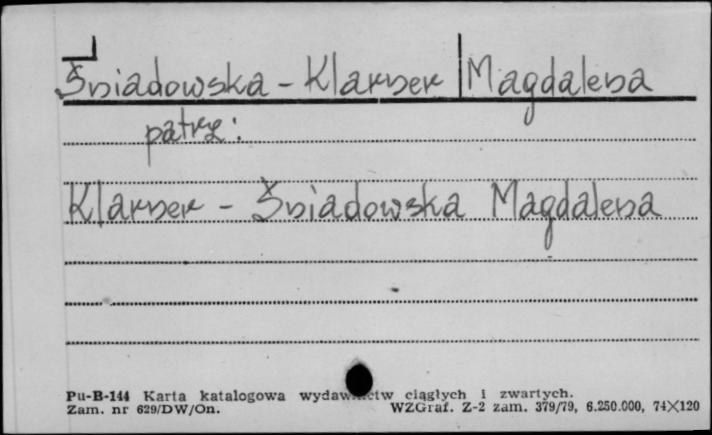 Śniadowska - Klarner Magdalena
patrz:
Klarner - Śniadowska Magdalena
Pu-B-144 Karta katalogowa wydawnictw ciągłych i zwartych.
Zam. nr 629/DW/On. WZGraf. Z-2 zam. 379/79, 6.250.000, 74×120